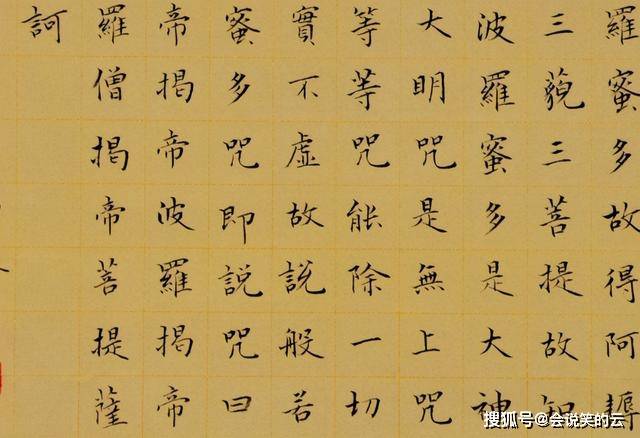 羅蜜多故得阿耨
三藐三菩提故知
波羅蜜多是大神
大明咒是無上咒
等等咒能除一切
實不虛故說般若
蜜多咒即說咒曰
帝揭帝波羅揭帝
羅僧揭帝菩提薩
訶
搜狐号@会说笑的云